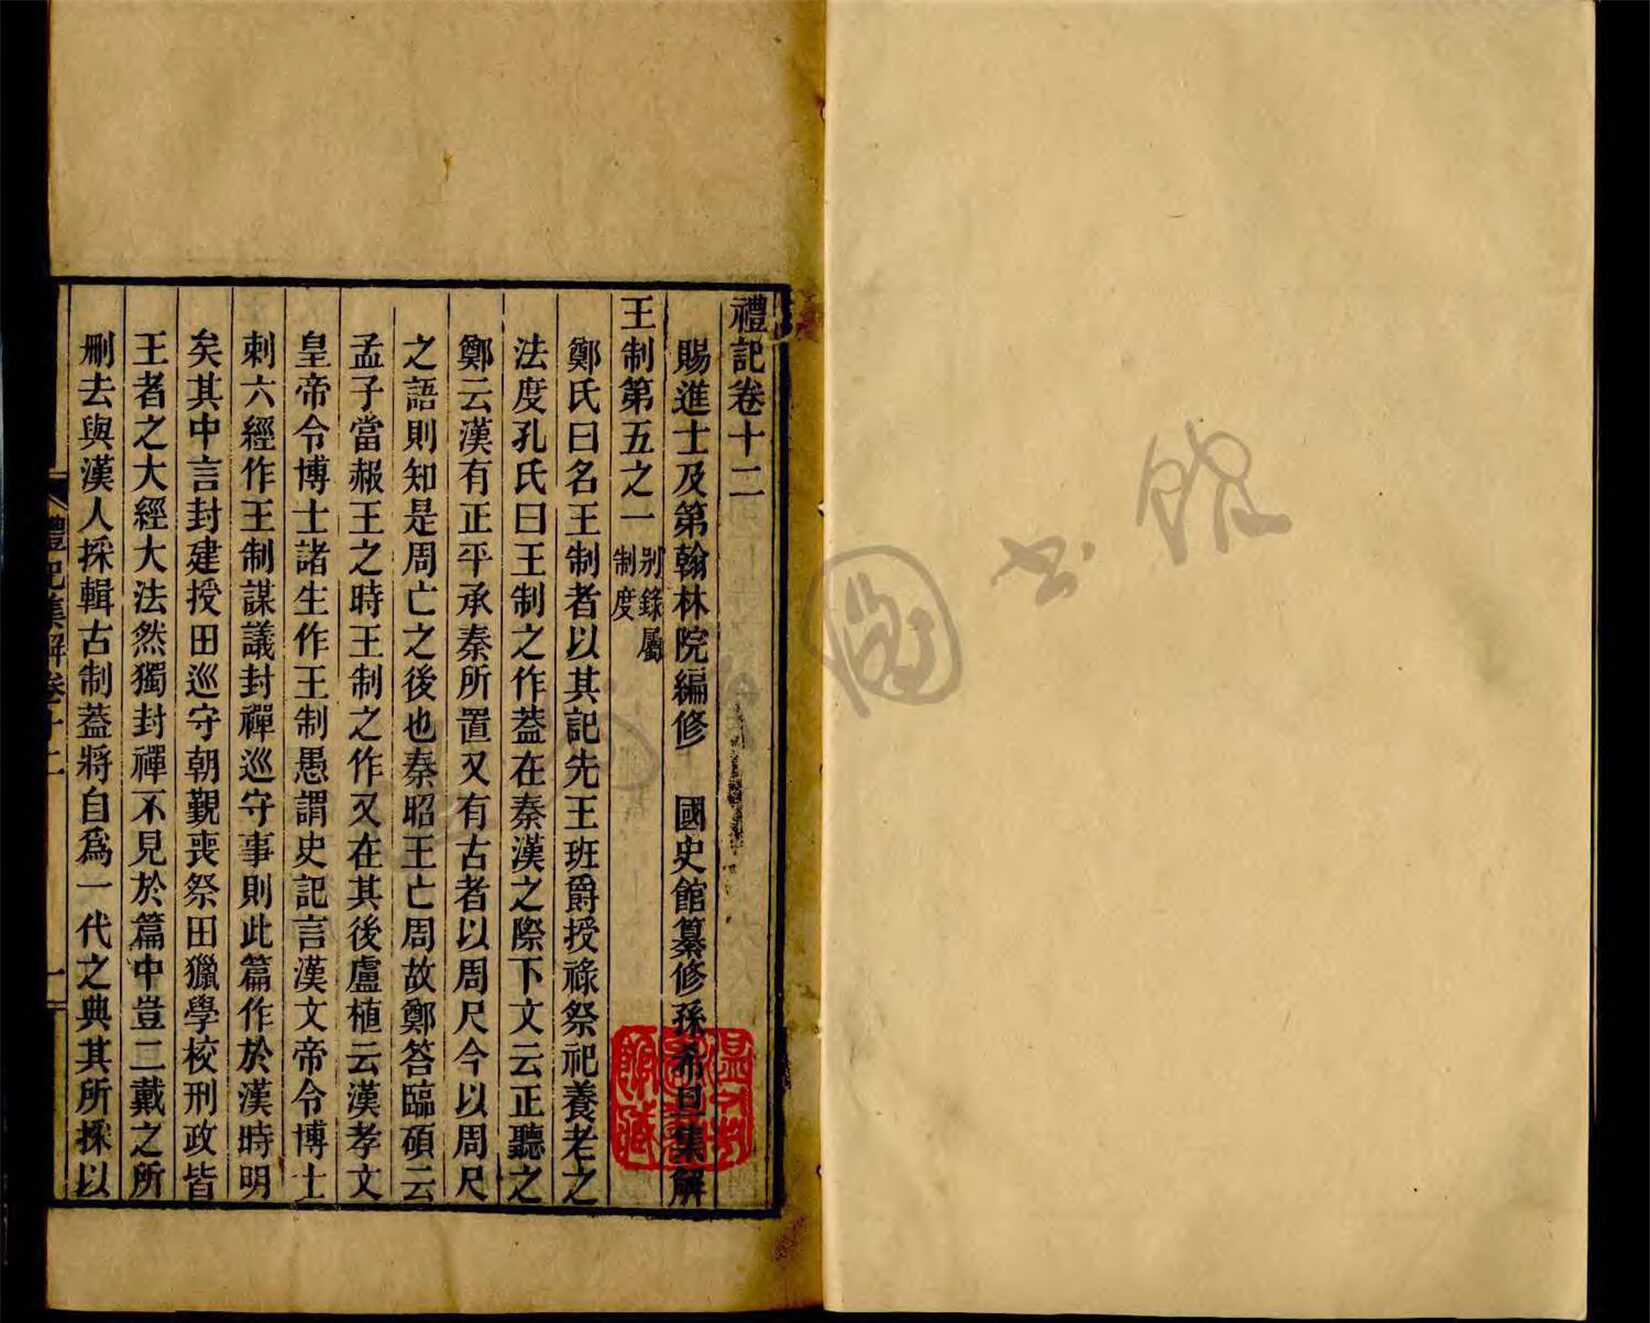 禮記卷十二
賜進士及第翰林院編修 國史館纂修孫希旦集解
王制第五之一 别錄屬制度
鄭氏曰名王制者以其記先王班爵授祿祭祀養老之
法度孔氏曰王制之作蓋在秦漢之際下文云正聽之
鄭云漢有正平承秦所置又有古者以周尺今以周尺
之語則知是周亡之後也秦昭王亡周故鄭答臨碩云
孟子當赧王之時王制之作又在其後盧植云漢孝文
皇帝令博士諸生作王制愚謂史記言漢文帝令博士
刺六經作王制謀議封禪巡守事則此篇作於漢時明
矣其中言封建授田巡守朝覲喪祭田獵學校刑政皆
王者之大經大法然獨封禪不見於篇中豈二戴之所
刪去與漢人採輯古制蓋將自爲一代之典其所採以
禮記集解卷十二
一
圖書館